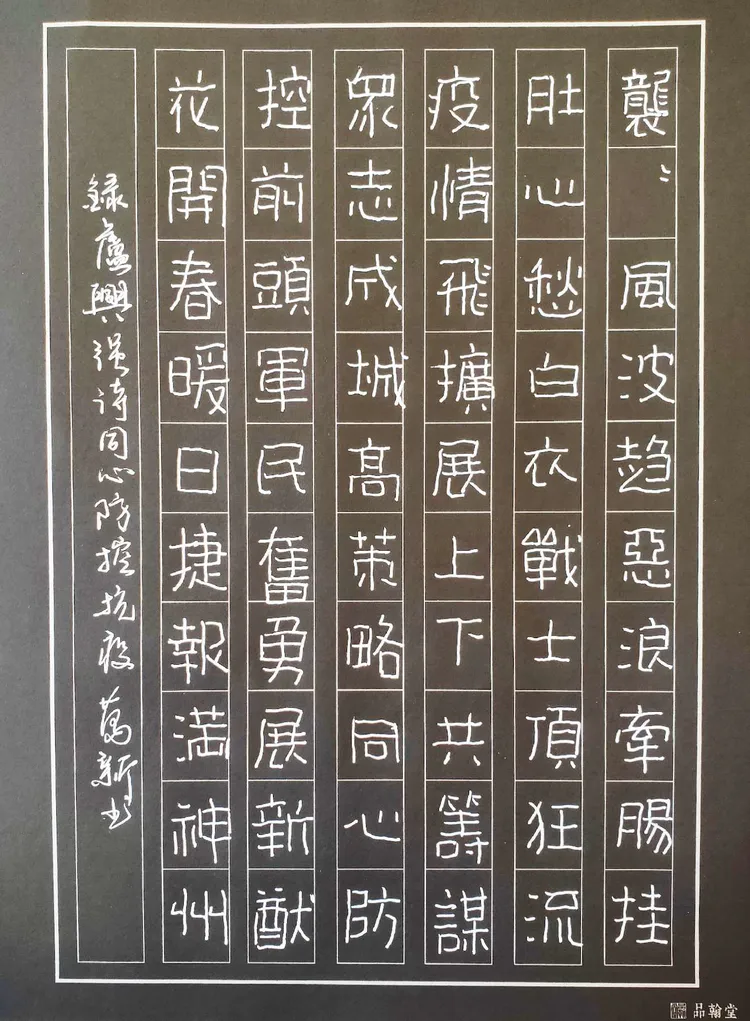 襲〻風波趋惡浪牽腸挂
肚心愁白衣戰士頂狂流
疫情飛擴展上下共籌謀
眾志成城高策略同心防
控前頭軍民奮勇展新猷
花開春暖日捷報滿神州
錄盧興强诗同心防控抗疫 萬新书
品翰堂